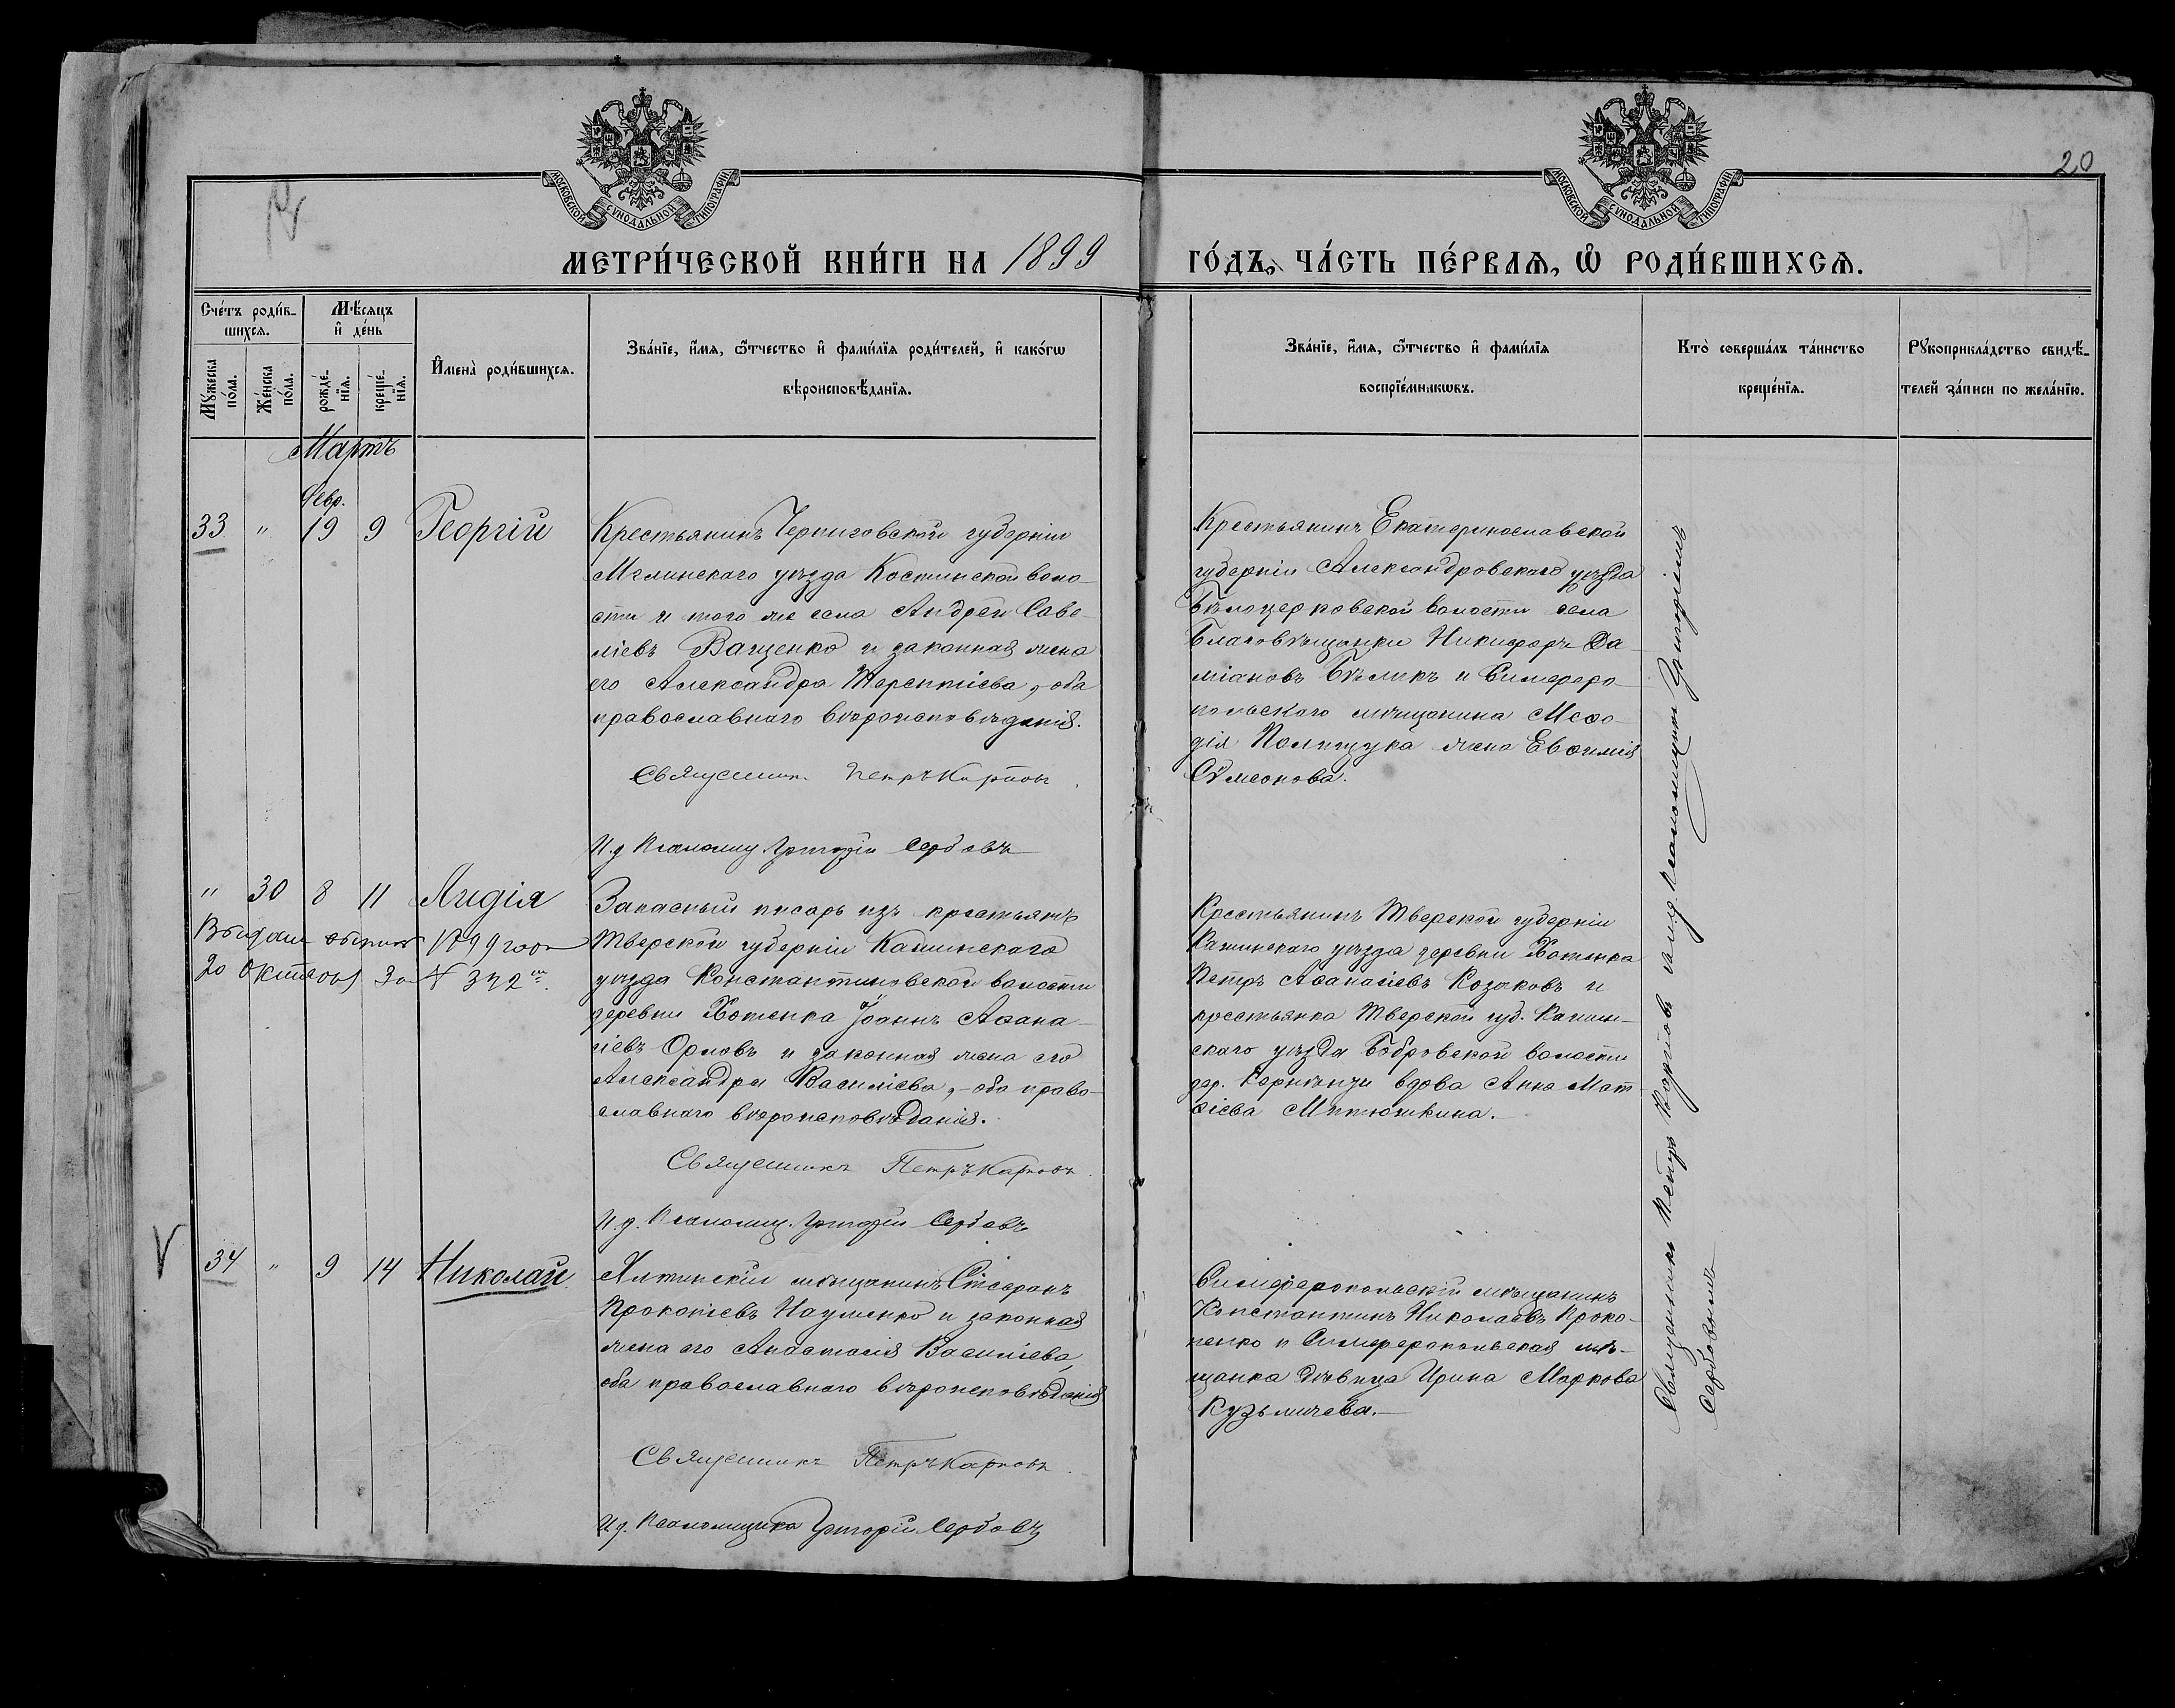 20
МОСКОВСКОЙ СѴНОДАЛЬНОЙ ТИПОГРАФІИ
МОСКОВСКОЙ СѴНОДАЛЬНОЙ ТИПОГРАФІИ
МЕТРИ́ЧЕСКОЙ КНИ́ГИ НА 1899
ГО́ДЪ, ЧА́СТЬ ПЕ́РВАѦ, Ѡ҆ РОДИ́ВШИХСѦ.
Сче́тъ роди́в-
шихсѧ.
Мѣ́сѧцъ
и҆ де́нь
Мꙋ́жеска
по́ла.
Же́нска
по́ла.
рожде́-
нїѧ.
креще́-
нїѧ.
И҆мена̀ роди́вшихсѧ.
Зва́нїе, и҆́мѧ, ѻ҆́тчество и҆ фами́лїѧ роди́телей, и҆ како́гѡ
вѣроисповѣ́данїѧ.
Зва́нїе, и҆́мѧ, ѻ҆́тчество и҆ фами́лїѧ
воспрїе́мникѡвъ.
Кто̀ соверша́лъ та́инство
креще́нїѧ.
Рꙋкоприкла́дство свидѣ́-
телей за́писи по жела́нїю.
Мартъ
Февр.
33 " 19 9 Георгій
Крестьянинъ Черниговской губерніи
Мглинскаго уѣзда Костинской воло-
сти и того же села Андрей Саве-
ліевъ Ващенко и законная жена
его Александра Терентіева, оба
православнаго вѣроисповѣданія.
Священникъ Петръ Карповъ
И.д. Псаломщ. Григорій Сербовъ
Крестьянинъ Екатеринославской
губерніи Александровскаго уѣзда
Бѣлоцерковской волости села
Благовѣщенки Никифоръ Да-
міановъ Бѣликъ и Симферо-
польскаго мѣщанина Меѳо-
дія Полищука жена Евѳимія
Сѵмеонова.
" 30 8 11 Лидія
Выдан 1899 года
20 Октября За № 332
Запасный писарь изъ крестьянъ
Тверской губерніи Кашинскаго
уѣзда Константиновской волости
деревни Хотенка Іоаннъ Аѳана-
сіевъ Орловъ и законная жена его
Александра Василіева, - оба право-
славнаго вѣроисповѣданія.
Священникъ Петръ Карповъ
И.д. Псаломщ. Григорій Сербовъ
Крестьянинъ Тверской губерніи
Кашинскаго уѣзда деревни Хотенка
Петръ Аѳанасіевъ Козаковъ и
крестьянка Тверской губ. Кашин-
скаго уѣзда Бобровской волости
дер. вдова Анна Мат-
ѳіева Митюшкина.
V 34 " 9 14 Николай
Ялтинскій мѣщанинъ Стефанъ
Прокопіевъ Науменко и законная
жена его Анастасія Василіева,
оба православнаго вѣроисповѣданія
Священникъ Петръ Карповъ
И.д. Псаломщика Григорій Сербовъ
Симферопольскій мѣщанинъ
Константинъ Николаевъ Проко-
пенко и Симферопольская мѣ-
щанка дѣвица Ирина Маркова
Кузьмичева.
Священникъ Петръ Карповъ и и.д. псаломщика Григоріемъ
Сербовымъ